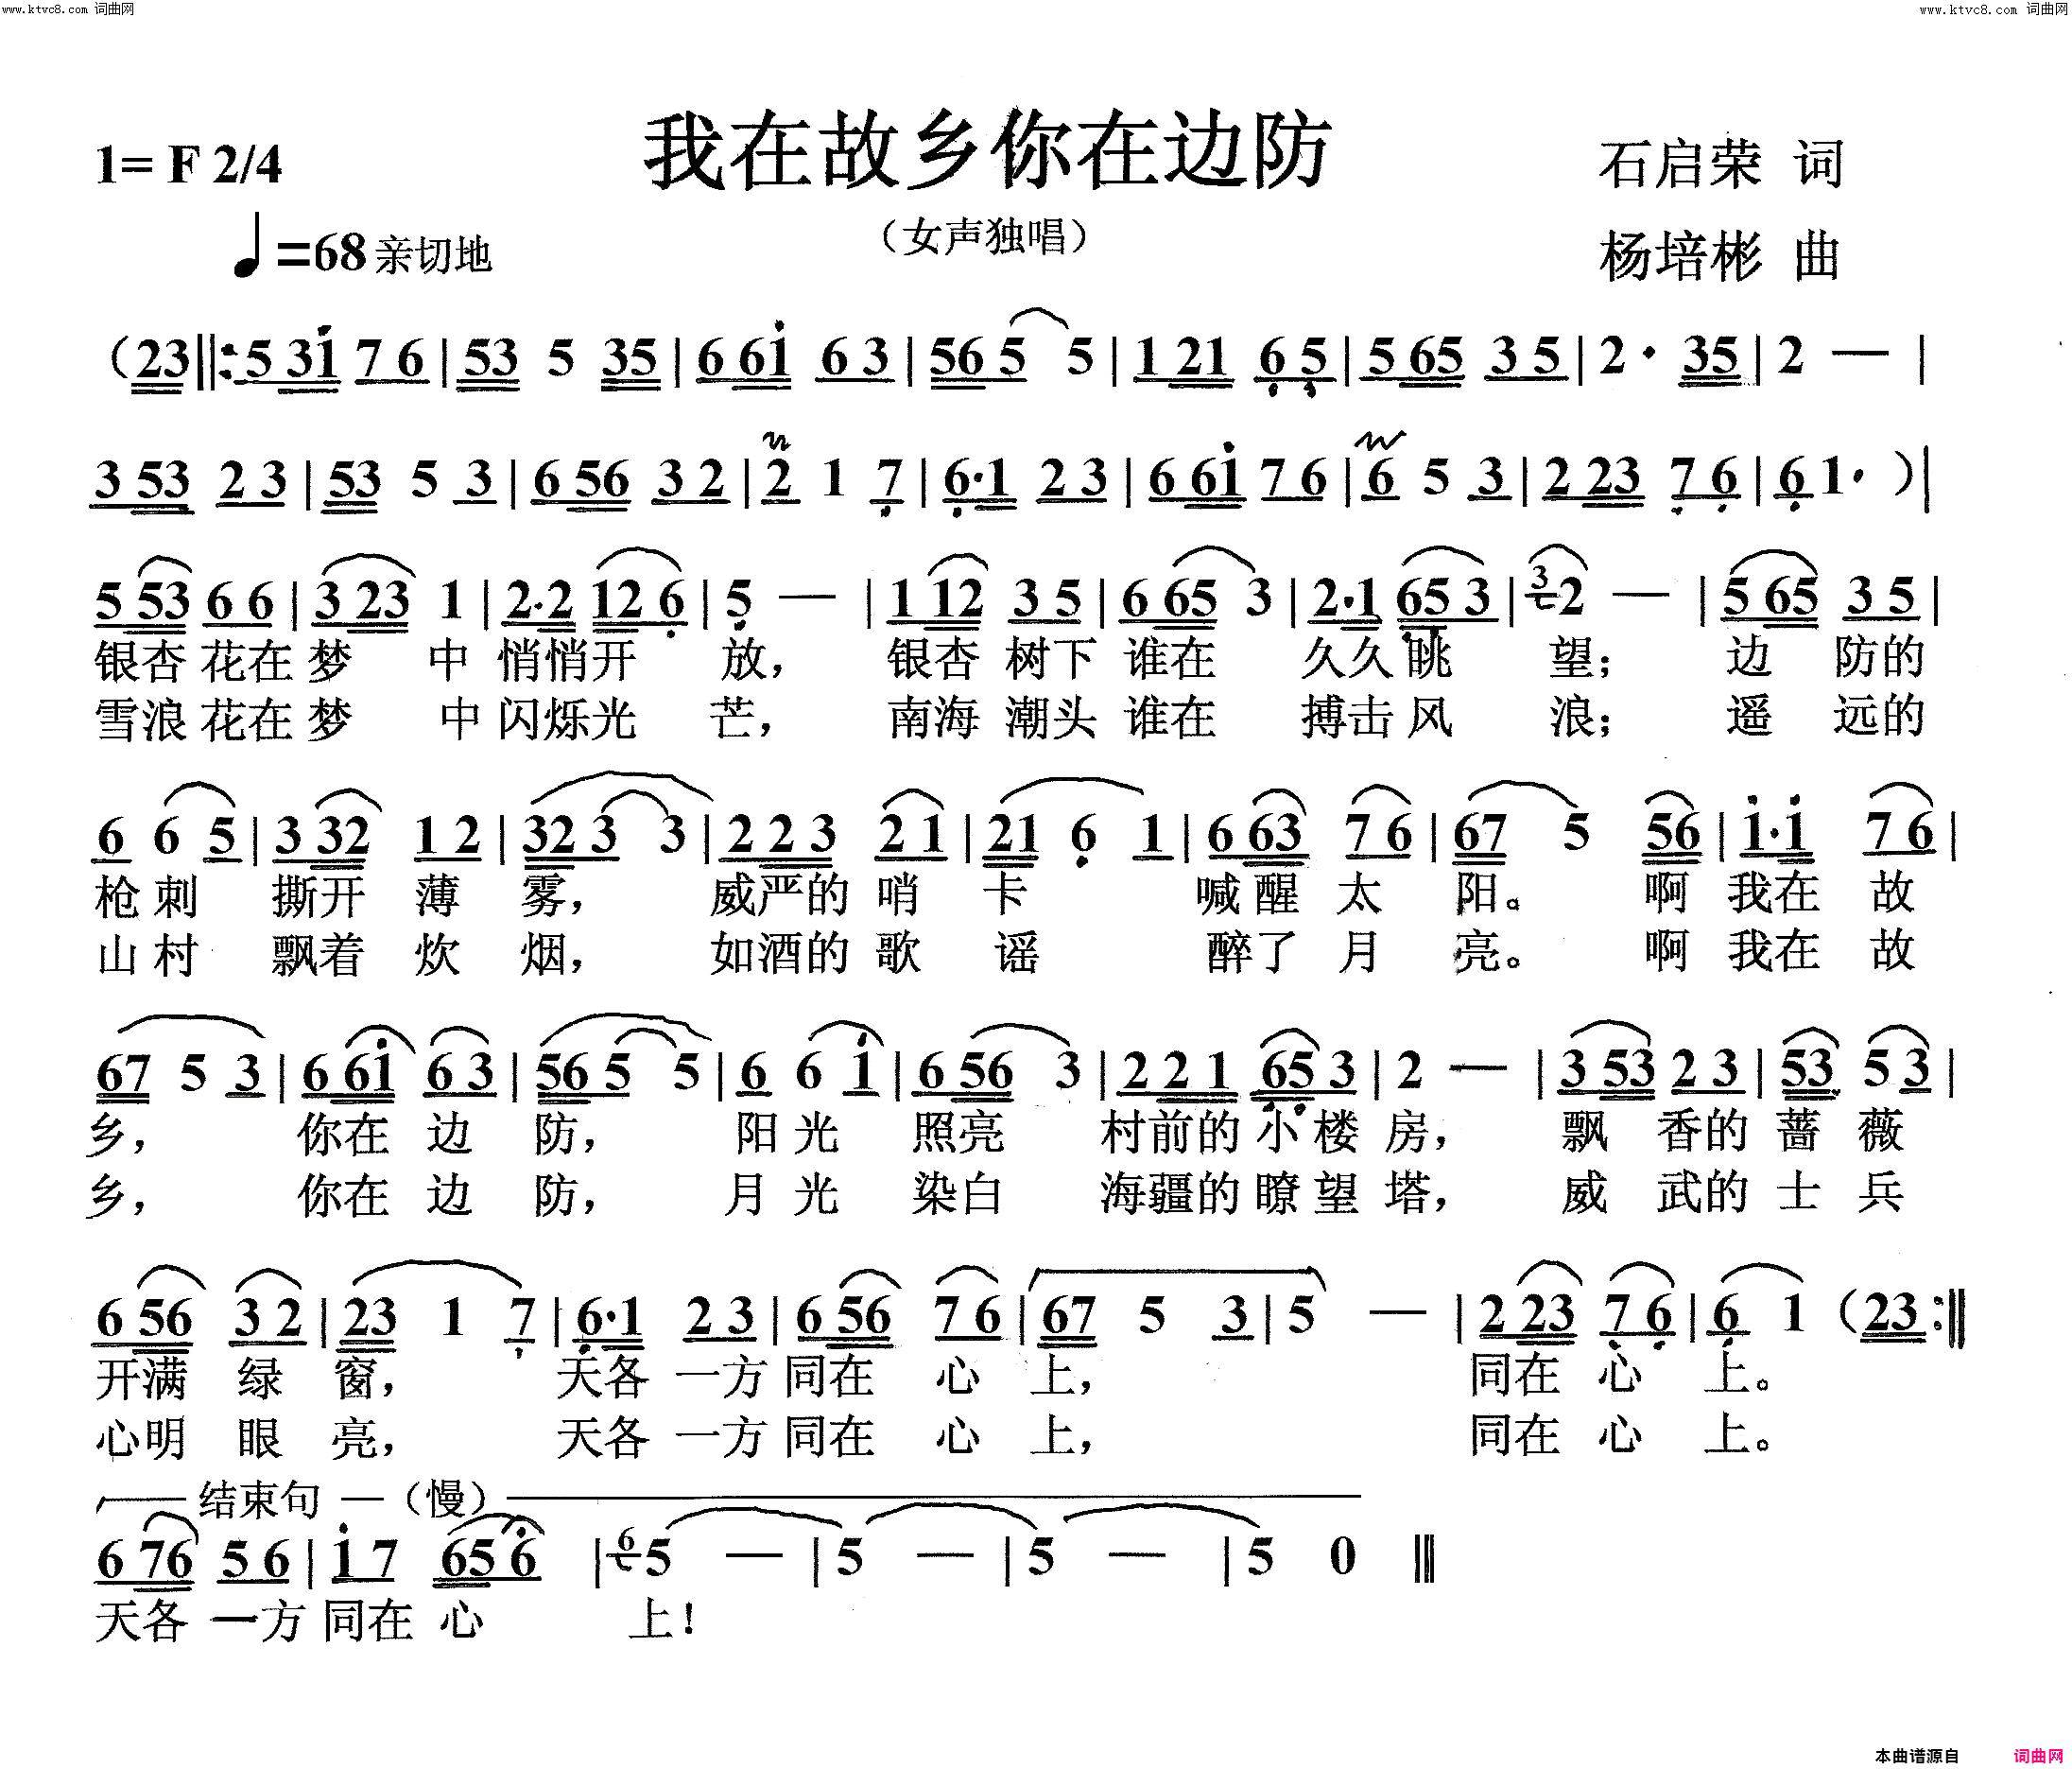 www.ktvc8.com 词曲网
www.ktvc8.com 词曲网
我在故乡你在边防
1= F 2/4
石启荣 词
(女声独唱)
♩=68 亲切地
杨培彬 曲
(23‖:5 31̇ 7 6|53 5 35|6 61̇ 6 3|56 5 5|1 21 6̣ 5̣|5 65 3 5|2· 35|2 —|
3 53 2 3|53 5 3|6 56 3 2|2 1 7̣|6̣·1 2 3|6 61̇ 7 6|6 5 3|2 23 7̣ 6̣|6̣ 1· )|
5 53 6 6|3 23 1|2·2 12 6̣|5̣ —|1 12 3 5|6 65 3|2·1 6̣5̣ 3|3 2 —|5 65 3 5|
银杏 花在 梦 中 悄悄开 放， 银杏 树下 谁在 久久眺 望； 边 防的
雪浪 花在 梦 中 闪烁光 芒， 南海 潮头 谁在 搏击风 浪； 遥 远的
6 6 5|3 32 1 2|32 3 3|2 2 3 2 1|21 6̣ 1|6 63 7 6|67 5 56|1̇·1̇ 7 6|
枪刺 撕开 薄 雾， 威严的 哨 卡 喊醒 太 阳。 啊 我在 故
山村 飘着 炊 烟， 如酒的 歌 谣 醉了 月 亮。 啊 我在 故
67 5 3|6 61̇ 6 3|56 5 5|6 6 1̇|6 56 3|2 2 1 6̣5̣ 3|2 —|3 53 2 3|53 5 3|
乡， 你在 边 防， 阳 光 照亮 村前的 小 楼 房， 飘 香的 蔷 薇
乡， 你在 边 防， 月 光 染白 海疆的 瞭 望 塔， 威 武的 士 兵
6 56 3 2|23 1 7̣|6̣·1 2 3|6 56 7 6|67 5 3|5 —|2 23 7̣ 6̣|6̣ 1 (23:‖
开满 绿 窗， 天各 一方 同在 心 上， 同在 心 上。
心明 眼 亮， 天各 一方 同在 心 上， 同在 心 上。
结束句 —(慢)
6 76 5 6|1̇ 7 65 6̇|6 5 —|5 —|5 —|5 0 ‖
天各 一方 同在 心 上！
本曲谱源自 词曲网